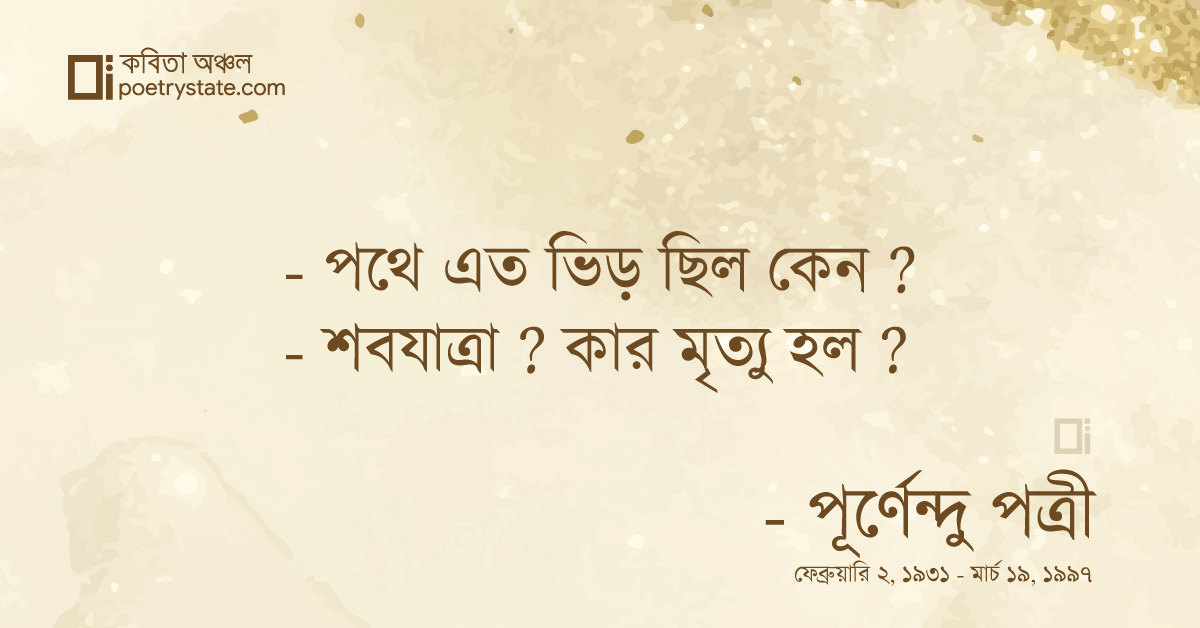 কবিতা অঞ্চল
poetrystate.com
- পথে এত ভিড় ছিল কেন ?
- শবযাত্রা ? কার মৃত্যু হল ?
- পূর্ণেন্দু পত্রী
ফেব্রুয়ারি ২, ১৯৩১ - মার্চ ১৯, ১৯৯৭